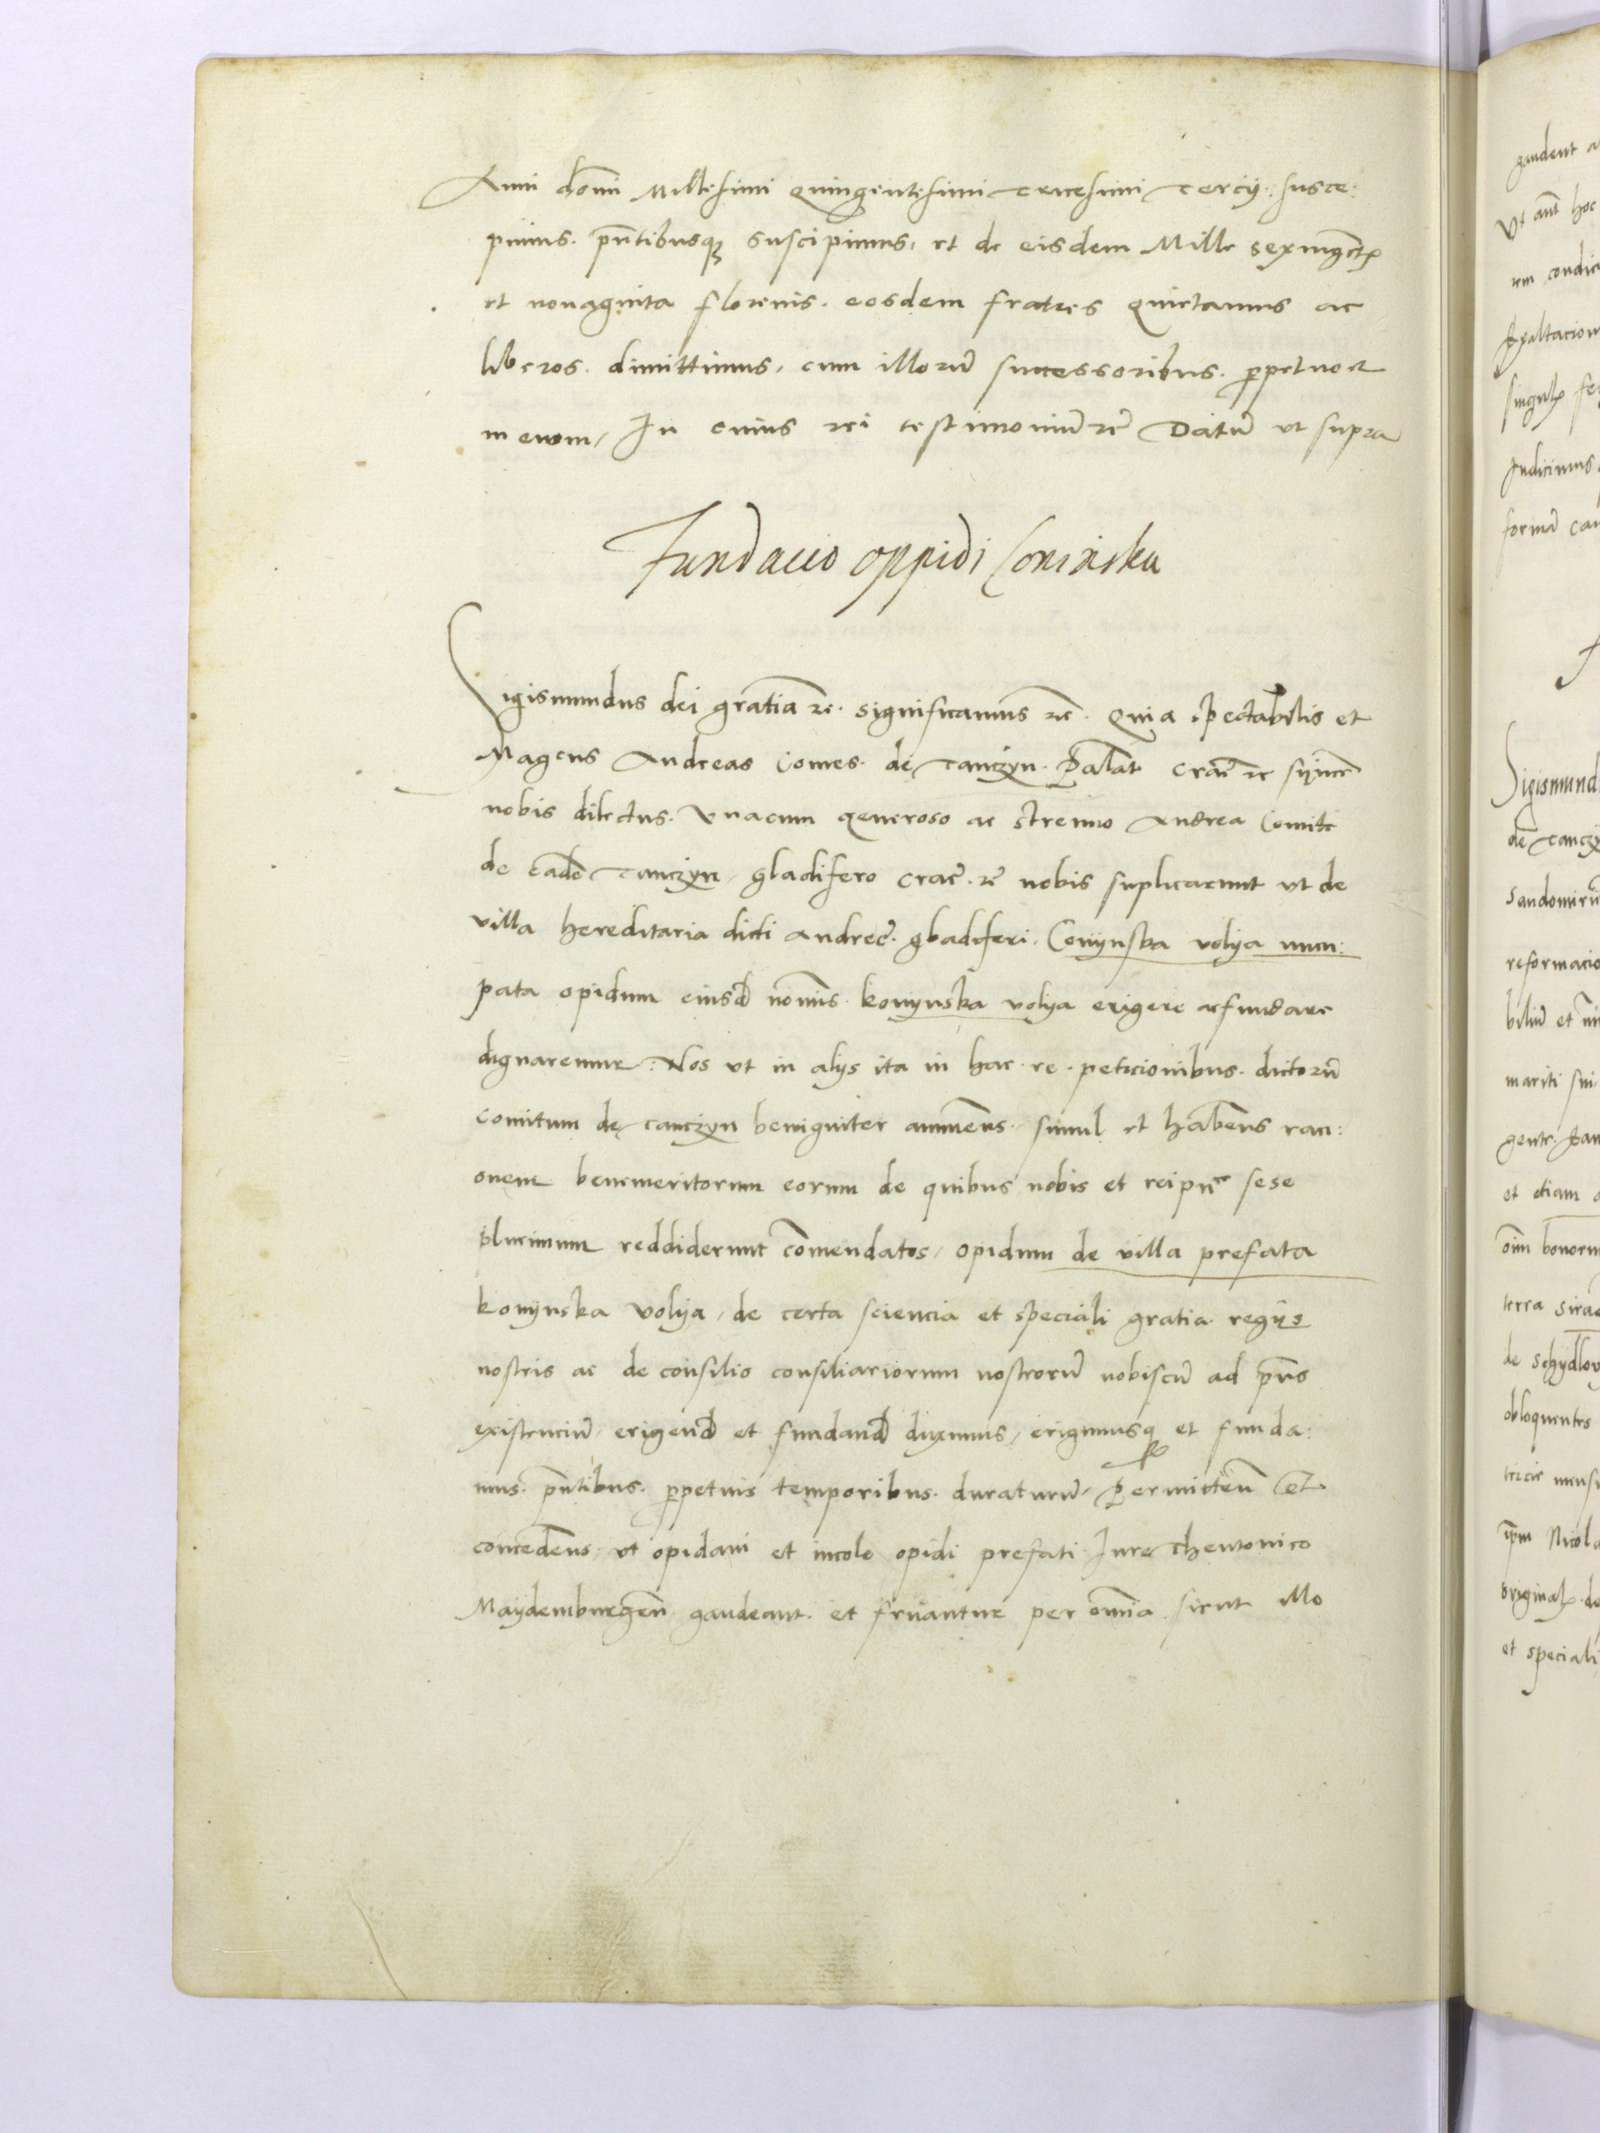 Anni domi Millesimi Quingentesimi tricesimi tercij. susce:
pimus. pntibusq suscipimus, et de eisdem Mille sexingct
et nonaginta florenis. eosdem fratres quietamus ac
liberos. dimittimus, cum illoru successoribus. ppetuo et
in evom, In cuius rei testimoniu rc Datu ut supra
Fundacio oppidi Coninska
Sigismundus dei gratia rc. significamus rc. Quia spectabilis et
Magcus Andreas Comes. de Tanczyn. Palat Crac rc syncr
nobis dilectus. Unacum generoso ac strenuo Andrea Comite
de eade Tanczyn, gladifero Crac. rc nobis suplicarunt ut de
villa hereditaria dicti Andree. gladiferi. Conynska volya nuncu:
pata opidum eiusd nomis. konynska volya erigere ac fundare
dignaremur: Nos ut in alijs ita in hac. re. peticionibus. dictoru
comitum de Tanczyn benigniter annuens. simul et habens raci:
onem benemeritorum eorum de quibus nobis et reipu sese
plurimum reddiderunt comendatos, opidum de villa prefata
konynska volya, de certa sciencia et speciali gratia regijs
nostris ac de consilio consiliariorum nostroru nobiscu ad pns
existenciu, erigend et fundand duximus, erigimusq et funda:
mus. pntibus. ppetuis temporibus. duraturu. Permitten et
conceden, ut opidani et incole opidi prefati Iure theutonico
Maydemburgen gaudeant. et fruantur per omia. sicut illo
gaudent a
Ut aut hoc
um condic
Exaltacion
singul fe
Indicimus
forma ca
Sigismund
de Tanczy
Sandomirie
reformacio
biliu et
mariti sui
gente.
et etiam a
oim bonorum
terra Sirad
de Schydlov
obloquentes
ipm Nicola
original. de
et speciali